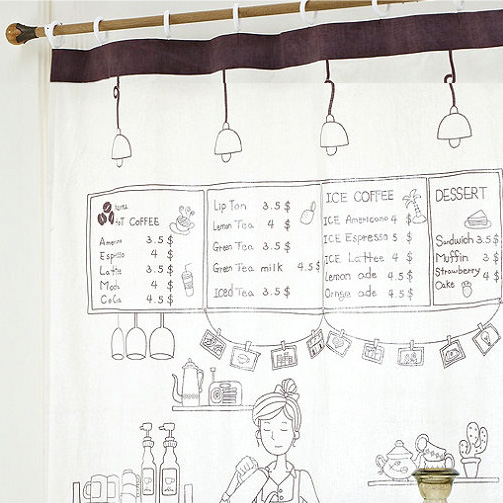 HOT COFFEE
Americ 3.5 $
Espresso 4 $
Latte 3.5 $
Mocha 4 $
CoCa 4.5 $
Lip Ton 3.5 $
Lemon Tea 4 $
Green Tea 3.5 $
Green Tea milk 4.5 $
Iced Tea 3.5 $
ICE COFFEE
ICE Americano 4 $
ICE Espresso 5 $
ICE Lattee 4 $
Lemon ade 4.5 $
Orange ade 4.5 $
DESSERT
Sandwich 3.5 $
Muffin 3 $
Strawberry 4 $
Cake